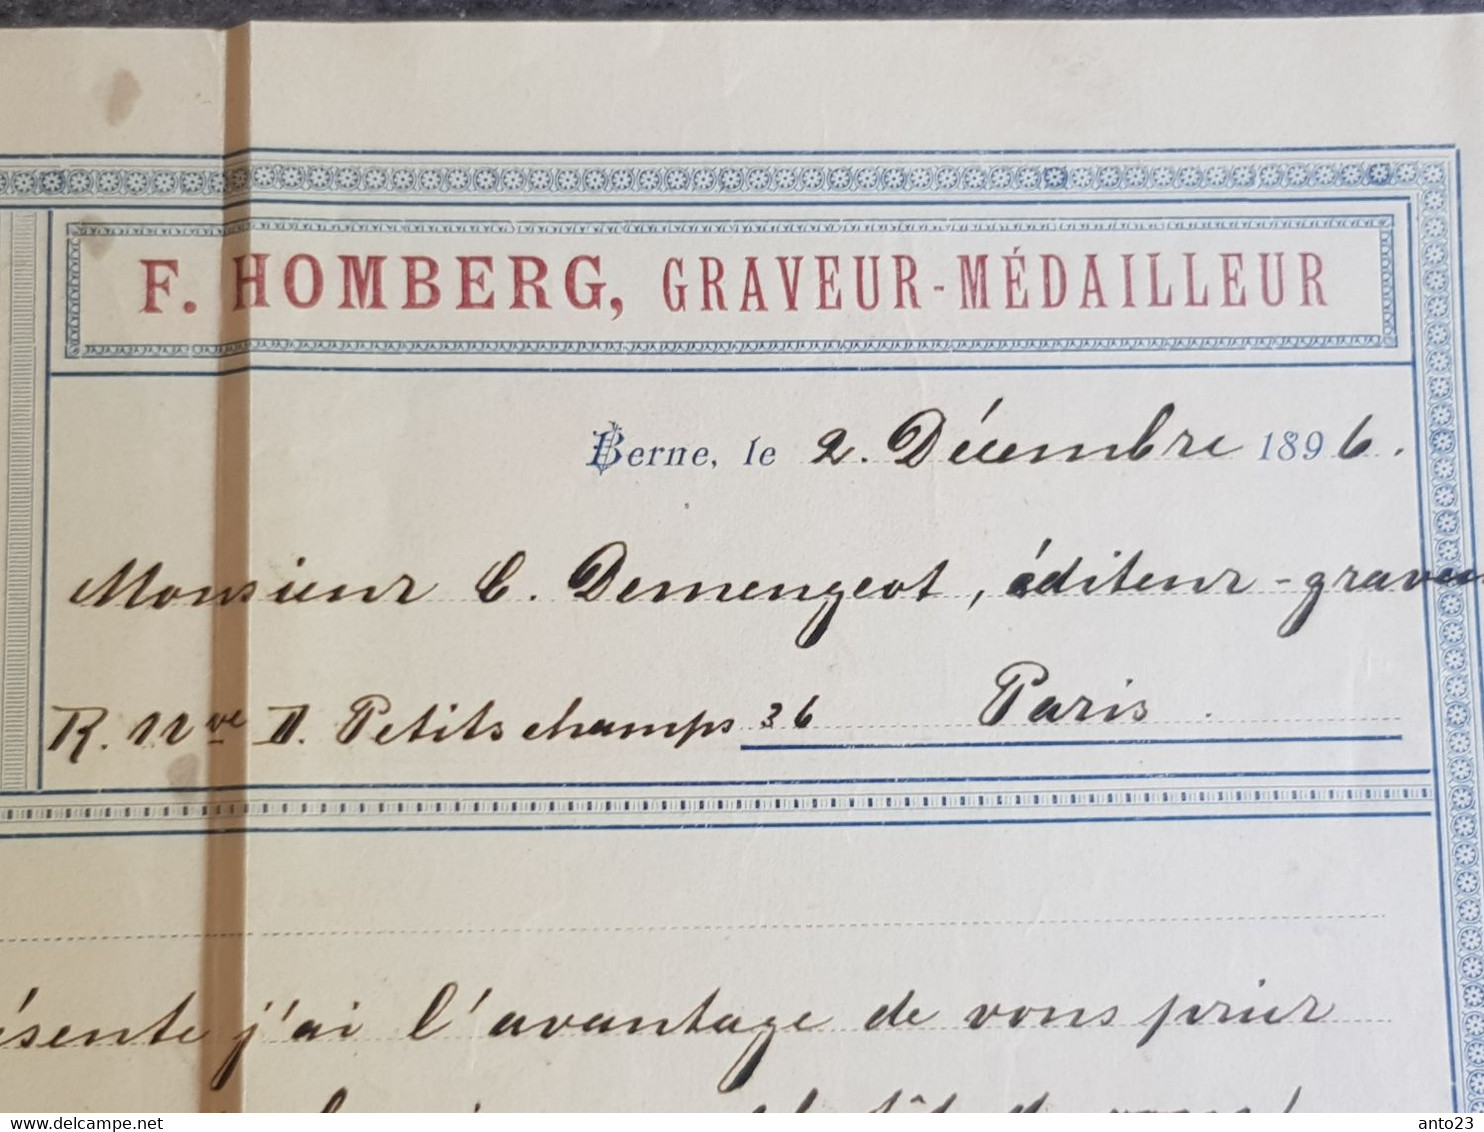 F. HOMBERG, GRAVEUR-MÉDAILLEUR
Berne, le 2. Décembre 1896.
Monsieur C. Demengeot, éditeur-graveu
R. Nve D. Petits champs 36 Paris.
ésente j'ai l'avantage de vous prier
anto23